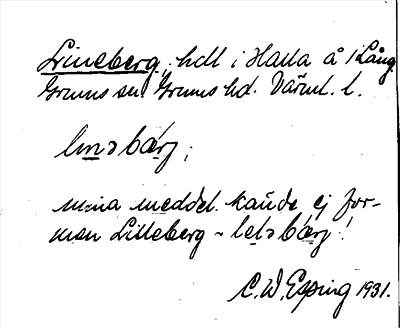 Lineberg, hdl i Halla å i Lång
Grums sn. Grums hd. Värml. l.
linəbærj;
mina meddel. kände ej for-
men Lilleberg ~ lɩləbærj!
C.W. Esping 1931.